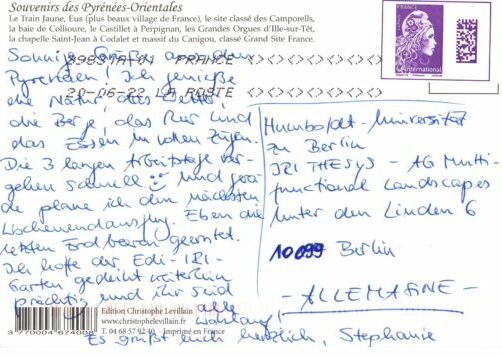 Souvenirs des Pyrénées-Orientales
Le Train Jaune, Eus (plus beaux village de France), le site classé des Camporells,
la baie de Collioure, le Castillet à Perpignan, les Grandes Orgues d'Ille-sur-Têt,
la chapelle Saint-Jean à Codalet et massif du Canigou, classé Grand Site France.
International
FRANCE
20-06-22 LA POSTE
Sonnige Grüße aus den
Pyrenäen! Ich genieße
die Natur, das Wetter,
die Berge, das Meer und
das Essen in vollen Zügen.
Die 3 langen Arbeitstage ver-
gehen schnell und gera
de plane ich den nächsten
Wochenendausflug. Eben die
letzten Erdbeeren geerntet.
Ich hoffe der Edi-IRI-
Garten gedeiht weiterhin
prächtig und ihr seid
alle
wohlauf!
Es grüßt euch herzlich, Stephanie
Humboldt-Universität
zu Berlin
IRI THESys - AG Multi-
functional Landscapes
Unter den Linden 6
10099 Berlin
- ALLEMAGNE -
Edition Christophe Levillain
www.christophelevillain.fr
T. 04 68 57 92 40 - Imprimé en France
3 770004 674008